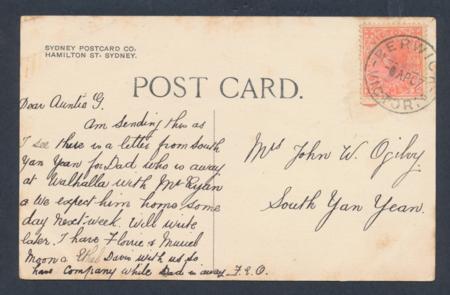 SYDNEY POSTCARD CO.
HAMILTON ST. SYDNEY.
POST CARD.
BERWICK
AP
VICTORIA
Dear Auntie G.
Am sending this as
I see there is a letter from South
Yan Yean for Dad who is away
at Walhalla with Mr Ryan
& We expect him home some
day next week. Will write
later. I have Florrie & Muriel
Moon & Davis with us so
have Company while Dad is away. F.E.O.
Mrs John W. Ogilby
South Yan Yean.